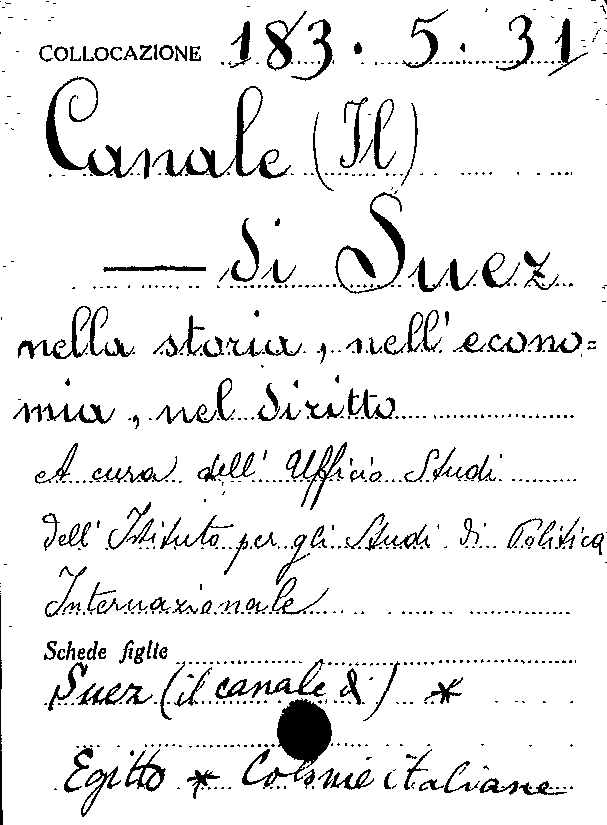 COLLOCAZIONE 183. 5. 31
Canale (Il)
— di Suez
nella storia, nell'econo=
mia, nel diritto
A cura dell'Ufficio Studi
dell'Istituto per gli Studi di Politica
Internazionale
Schede figlie
Suez (il canale d.) *
Egitto * Colonie italiane